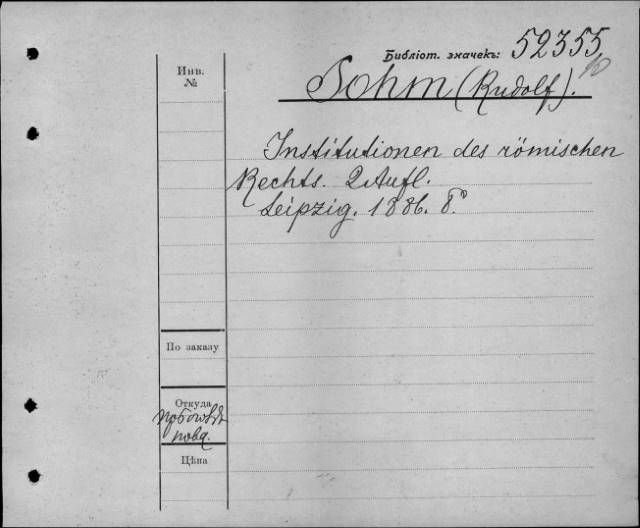 Библіот. значекъ: 52355
Инв.
№
Sohm (Rudolf).
Institutionen des römischen
Rechts. 2 Aufl.
Leipzig. 1886. 8°
По заказу
Откуда
Цѣна